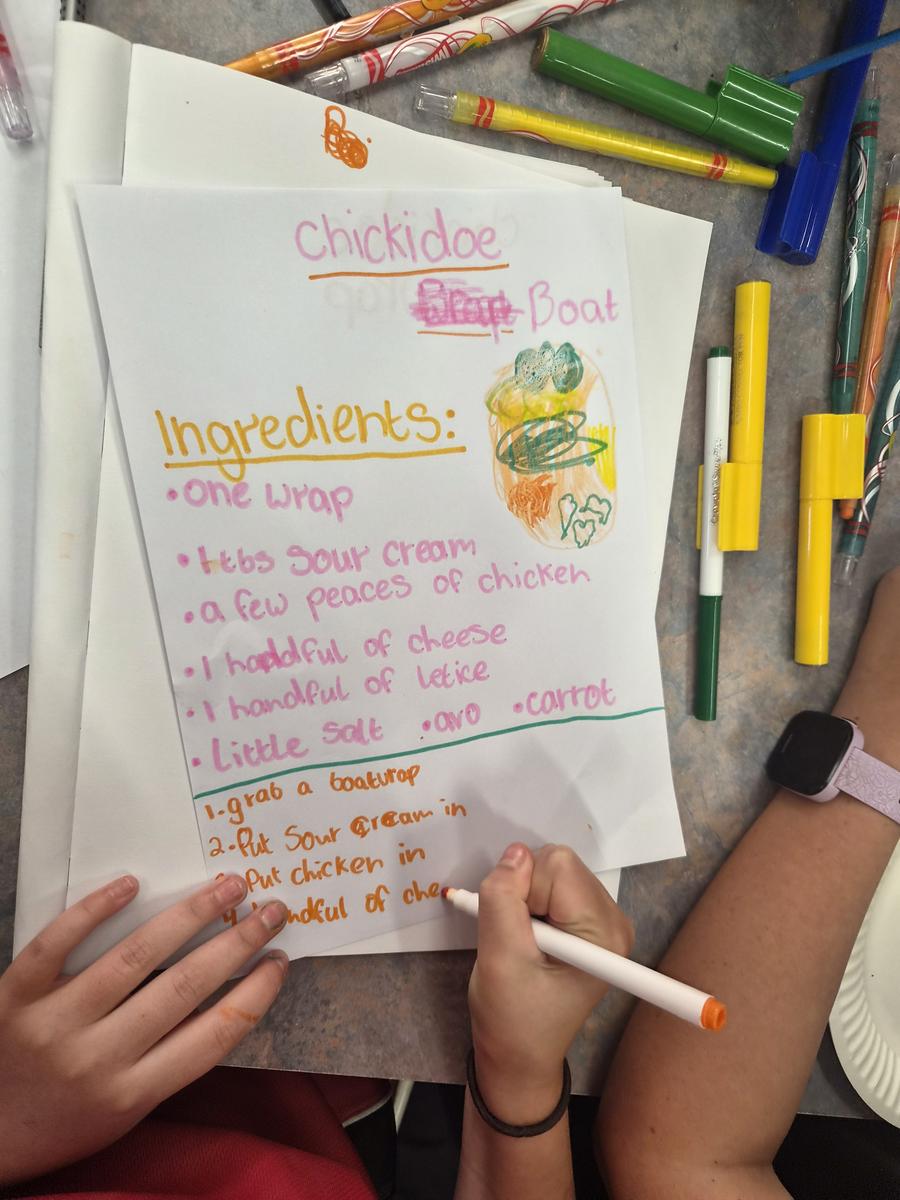 Chickidoe
Boat
Ingredients:
•one wrap
•1 tbs sour cream
•a few peaces of chicken
•1 haddful of cheese
•1 handful of letice
•Little salt •avo •carrot
1-grab a boatwrap
2-Put sour cream in
Put chicken in
4 handful of che